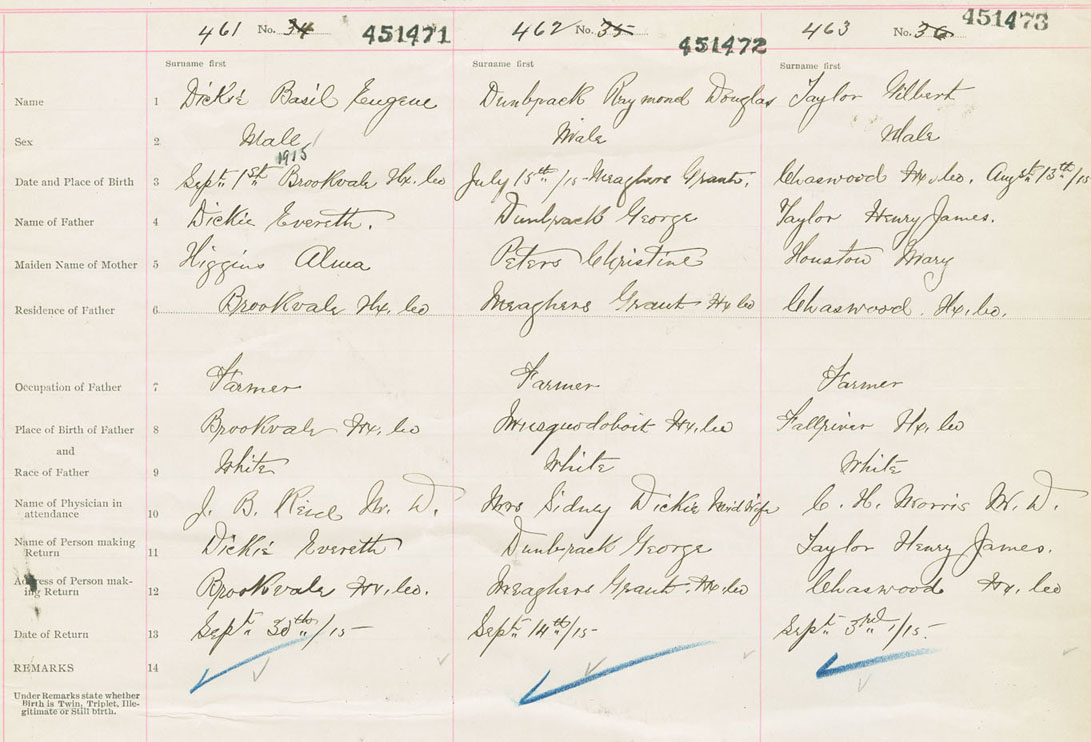 461 No. 34 451471 462 No. 35 451472 463 No. 36 451473
Surname first Surname first Surname first
Name 1 Dickie Basil Eugene Dunbrack Raymond Douglas Taylor Gilbert
Sex 2 Male Male Male
1915
Date and Place of Birth 3 Sept. 1st Brookvale Hx. Co July 15th/15 - Meaghers Grant. Chaswood Hx. Co. Augst. 13th/15
Name of Father 4 Dickie Evereth. Dunbrack George Taylor Henry James.
Maiden Name of Mother 5 Higgins Alma Peters Christine Houston Mary
Residence of Father 6 Brookvale Hx. Co Meaghers Grant Hx Co Chaswood. Hx. Co.
Occupation of Father 7 Farmer Farmer Farmer
Place of Birth of Father 8 Brookvale Hx. Co Musquodoboit Hx. Co Fallriver Hx. Co
and
Race of Father 9 White White White
Name of Physician in attendance 10 J. B. Reid M. D. Mrs Sidney Dickie Midwife C. H. Morris M. D.
Name of Person making Return 11 Dickie Evereth Dunbrack George Taylor Henry James.
Address of Person making Return 12 Brookvale Hx. Co. Meaghers Grant. Hx. Co Chaswood Hx. Co
Date of Return 13 Sept. 30th/15 - Sept. 14th/15 - Sept. 3rd/15.
REMARKS 14
Under Remarks state whether
Birth is Twin, Triplet, Ille-
gitimate or Still birth.